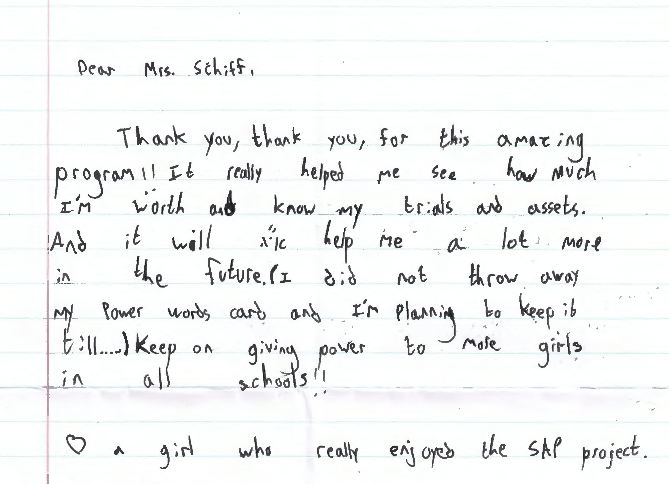 Dear Mrs. Schiff,
Thank you, thank you, for this amazing
program!! It really helped me see how much
I'm worth and know my trials and assets.
And it will help me a lot more
in the future. (I did not throw away
my Power words card and I'm planning to keep it
till....) Keep on giving power to more girls
in all schools!!
♡ a girl who really enjoyed the SAP project.